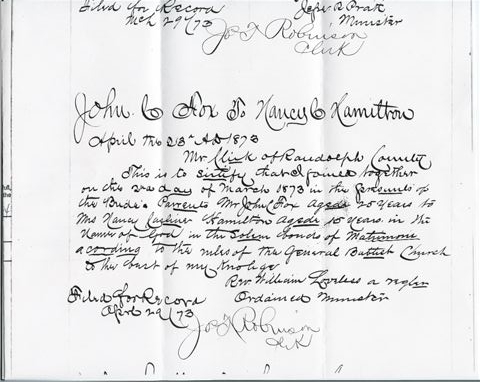 Filed for Record
Mch 29/73
Minister
Jos T Robinson
Clerk
John C Fox To Nancy C Hamilton
April the 23rd AD 1873
Mr Clirk of Randolph County
This is to sirtify that I joined together
on the day of March 1873 in the of
the Bride's Parrents Mr John Fox Aged 20 years to
Mrs Nancy Hamilton Aged 15 years in the
Name of God in the Solem bonds of Matrimone
acording to the rules of the General Baptist Church
to the bart of my Knolege
Rev William Loveless a regler
Ordained Minister
Filed for Record
April 29/73
Jos T Robinson
Clerk